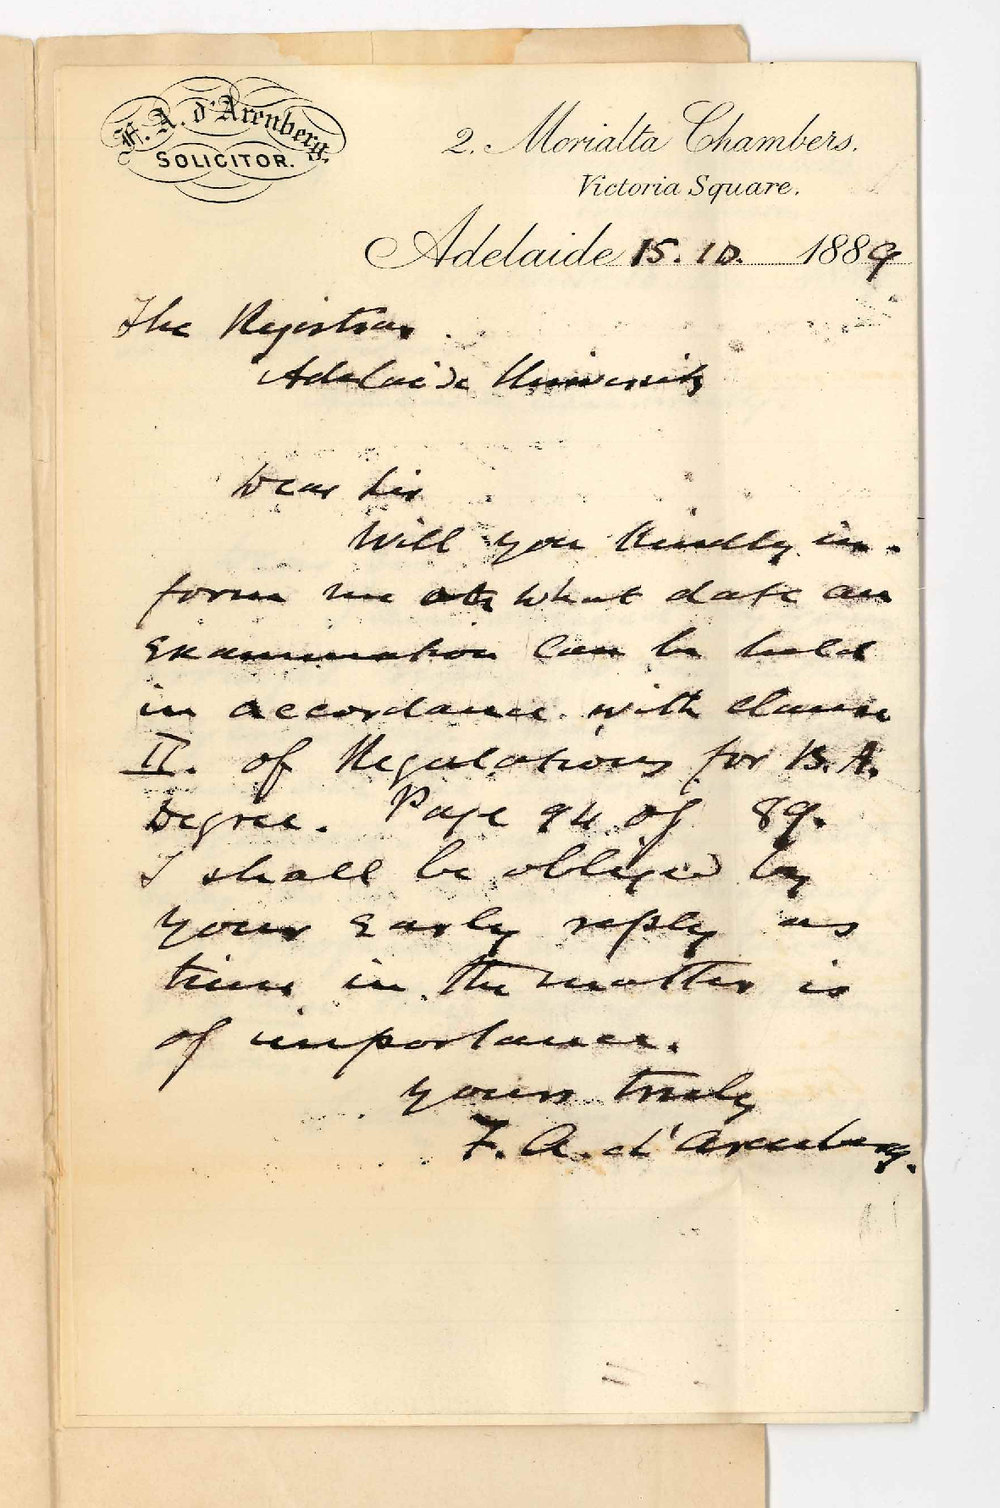 F. A. d'Arenberg,
SOLICITOR.
2. Morialta Chambers.
Victoria Square.
Adelaide 15. 10. 1889
The Registrar
Adelaide University
Dear Sir
Will you kindly in-
form me at what date an
Examination can be held
in accordance with clause
II. of Regulations for B.A.
Degree. Page 94 of 89.
I shall be obliged by
your early reply as
time in the matter is
of importance.
yours truly
F. A. d'Arenberg.